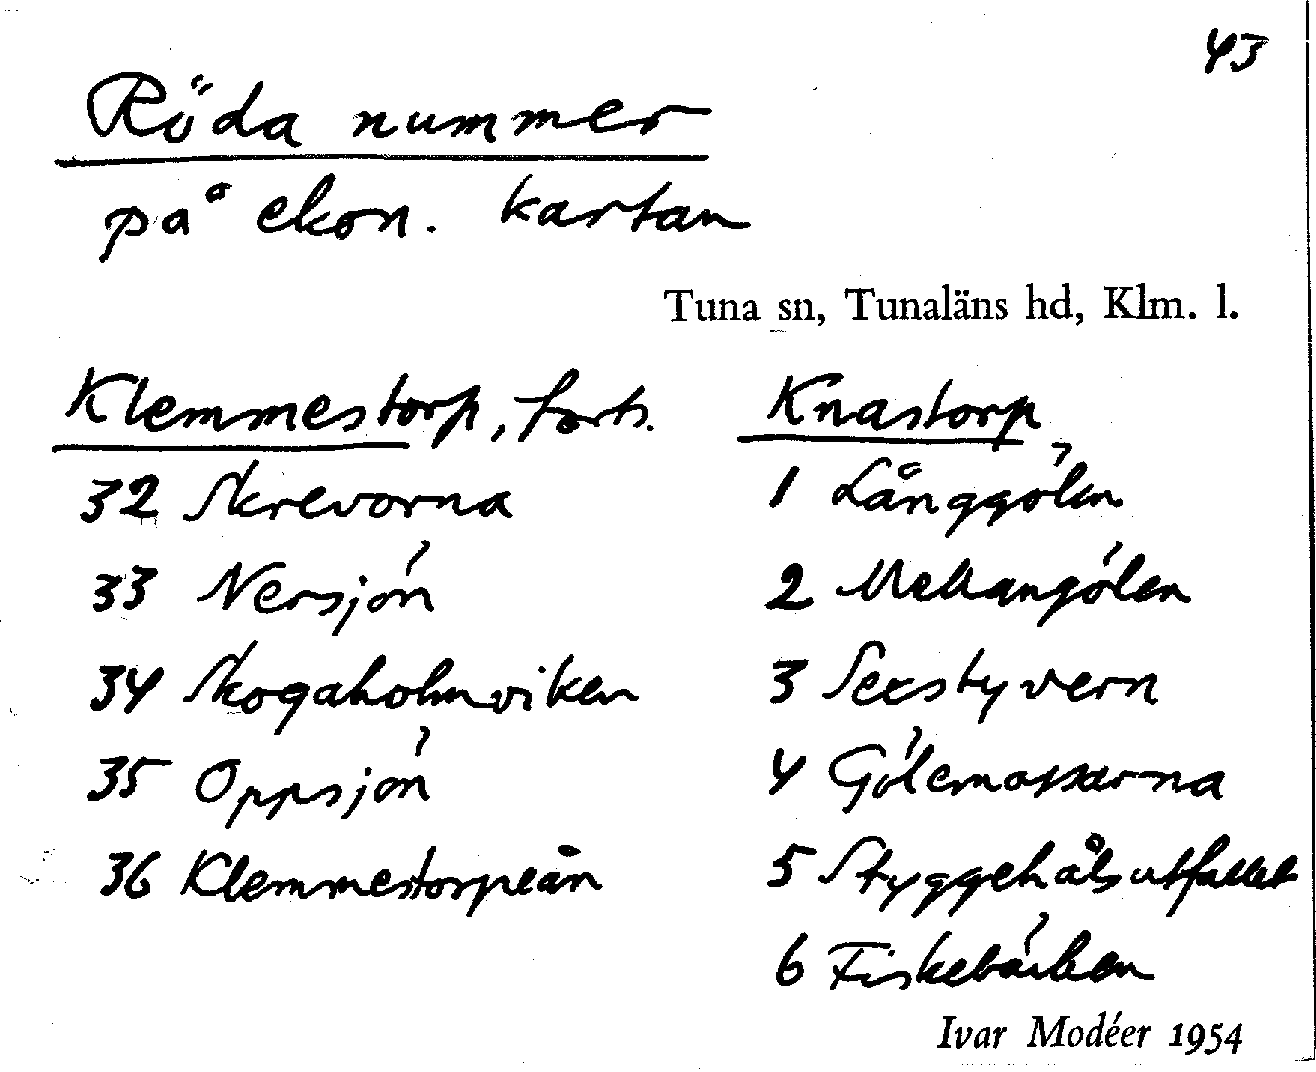 43
Röda nummer
på ekon. kartan
Tuna sn, Tunaläns hd, Klm. l.
Klemmestorp, forts.
32 Skrevorna
33 Nersjön
34 Skogaholmviken
35 Oppsjön
36 Klemmestorpeån
Knastorp
1 Långgölen
2 Mellangölen
3 Sexstyvern
4 Gölemossarna
5 Styggehålsutfallet
6 Fiskebäcken
Ivar Modéer 1954